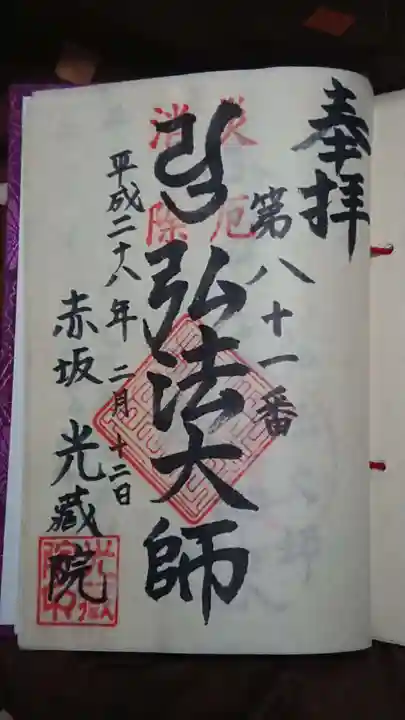 奉拝
第八十一番
災厄
消除
弘法大師
平成二十八年 二月 十二日
赤坂 光蔵院